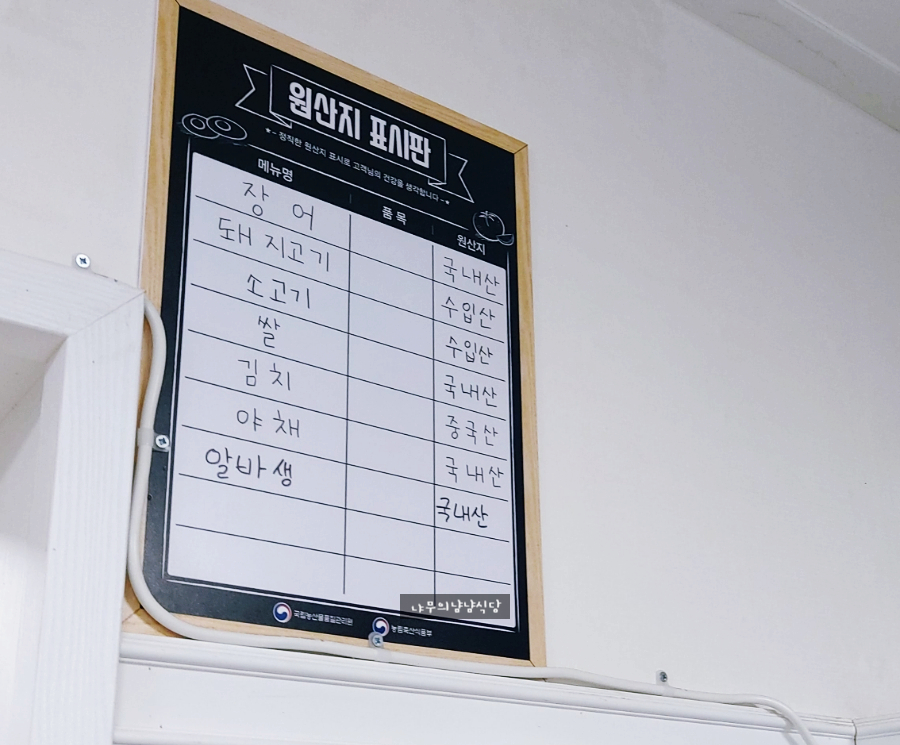 원산지 표시판
★- 정직한 원산지 표시로 고객님의 건강을 생각합니다 -★
메뉴명 품목 원산지
장어 국내산
돼지고기 수입산
소고기 수입산
쌀 국내산
김치 중국산
야채 국내산
알바생 국내산
냐무의냠냠식당
국립농산물품질관리원 농림축산식품부